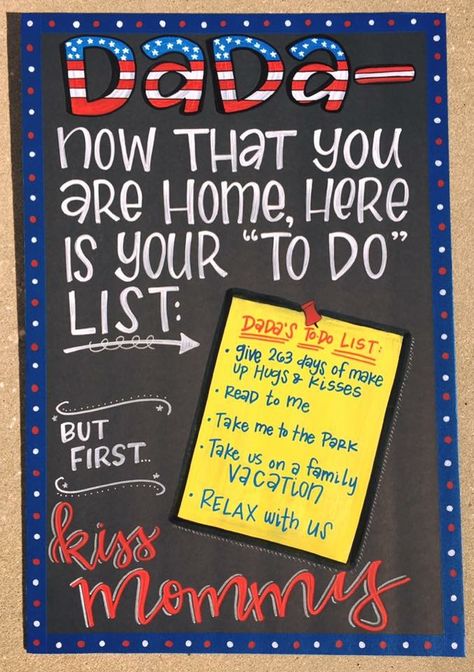 DaDa DaDa—
now THAT you
are Home, Here
is your "TO DO"
LIST:
DaDa's To-Do List:
• give 263 days of make
up Hugs & Kisses
• Read to me
• Take me to the Park
• Take us on a family
vacation
• RELAX with us
BUT
FIRST...
kiss
mommy